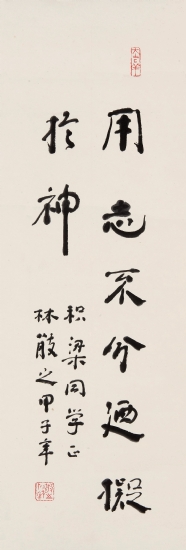 用志不分迺擬
於神
积梁同学正
林散之甲子年